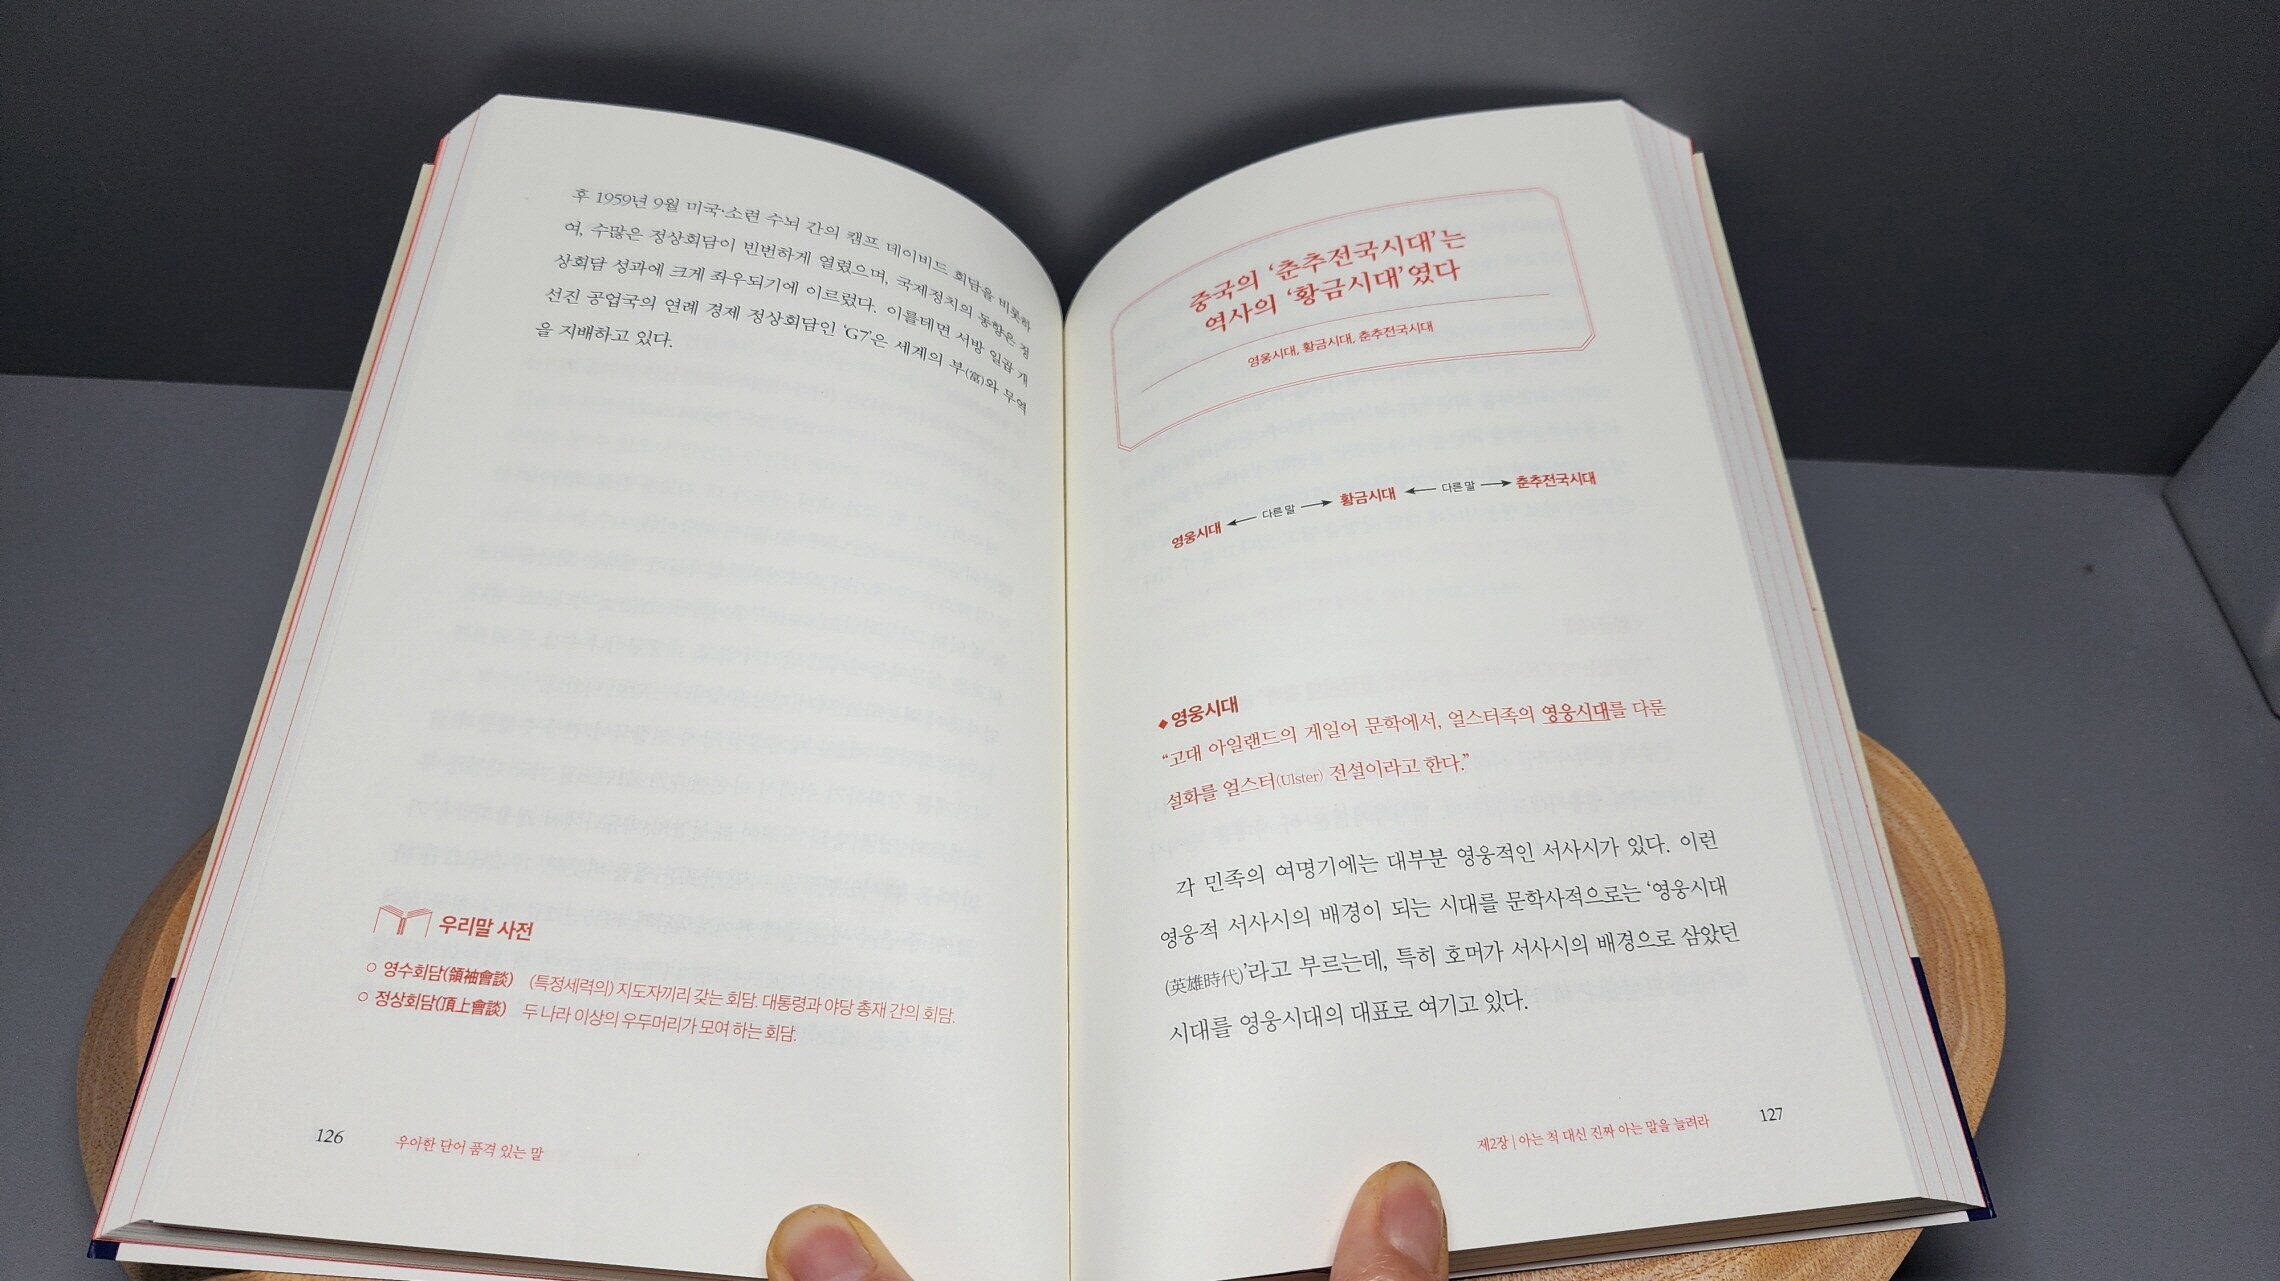 후 1959년 9월 미국·소련 수뇌 간의 캠프 데이비드 회담을 비롯하
여, 수많은 정상회담이 빈번하게 열렸으며, 국제정치의 동향은 정
상회담 성과에 크게 좌우되기에 이르렀다. 이를테면 서방 일곱 개
선진 공업국의 연례 경제 정상회담인 ‘G7’은 세계의 부(富)와 무역
을 지배하고 있다.
우리말 사전
○ 영수회담(領袖會談) (특정세력의) 지도자끼리 갖는 회담. 대통령과 야당 총재 간의 회담.
○ 정상회담(頂上會談) 두 나라 이상의 우두머리가 모여 하는 회담.
126 우아한 단어 품격 있는 말
중국의 ‘춘추전국시대’는
역사의 ‘황금시대’였다
영웅시대, 황금시대, 춘추전국시대
영웅시대 ←다른 말→ 황금시대 ←다른 말→ 춘추전국시대
◆영웅시대
“고대 아일랜드의 게일어 문학에서, 얼스터족의 영웅시대를 다룬
설화를 얼스터(Ulster) 전설이라고 한다.”
각 민족의 여명기에는 대부분 영웅적인 서사시가 있다. 이런
영웅적 서사시의 배경이 되는 시대를 문학사적으로는 ‘영웅시대
(英雄時代)’라고 부르는데, 특히 호머가 서사시의 배경으로 삼았던
시대를 영웅시대의 대표로 여기고 있다.
제2장 | 아는 척 대신 진짜 아는 말을 늘려라 127